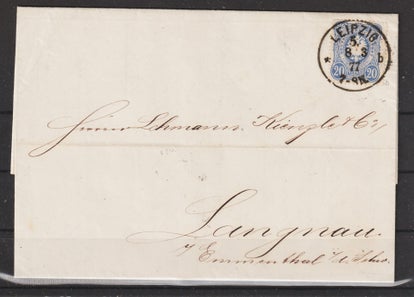 LEIPZIG
5.
8 3
77
* b
20 20
Herren Lehmann, Kienzle & Co,
Langnau.
Emmenthal i/d. Schw.